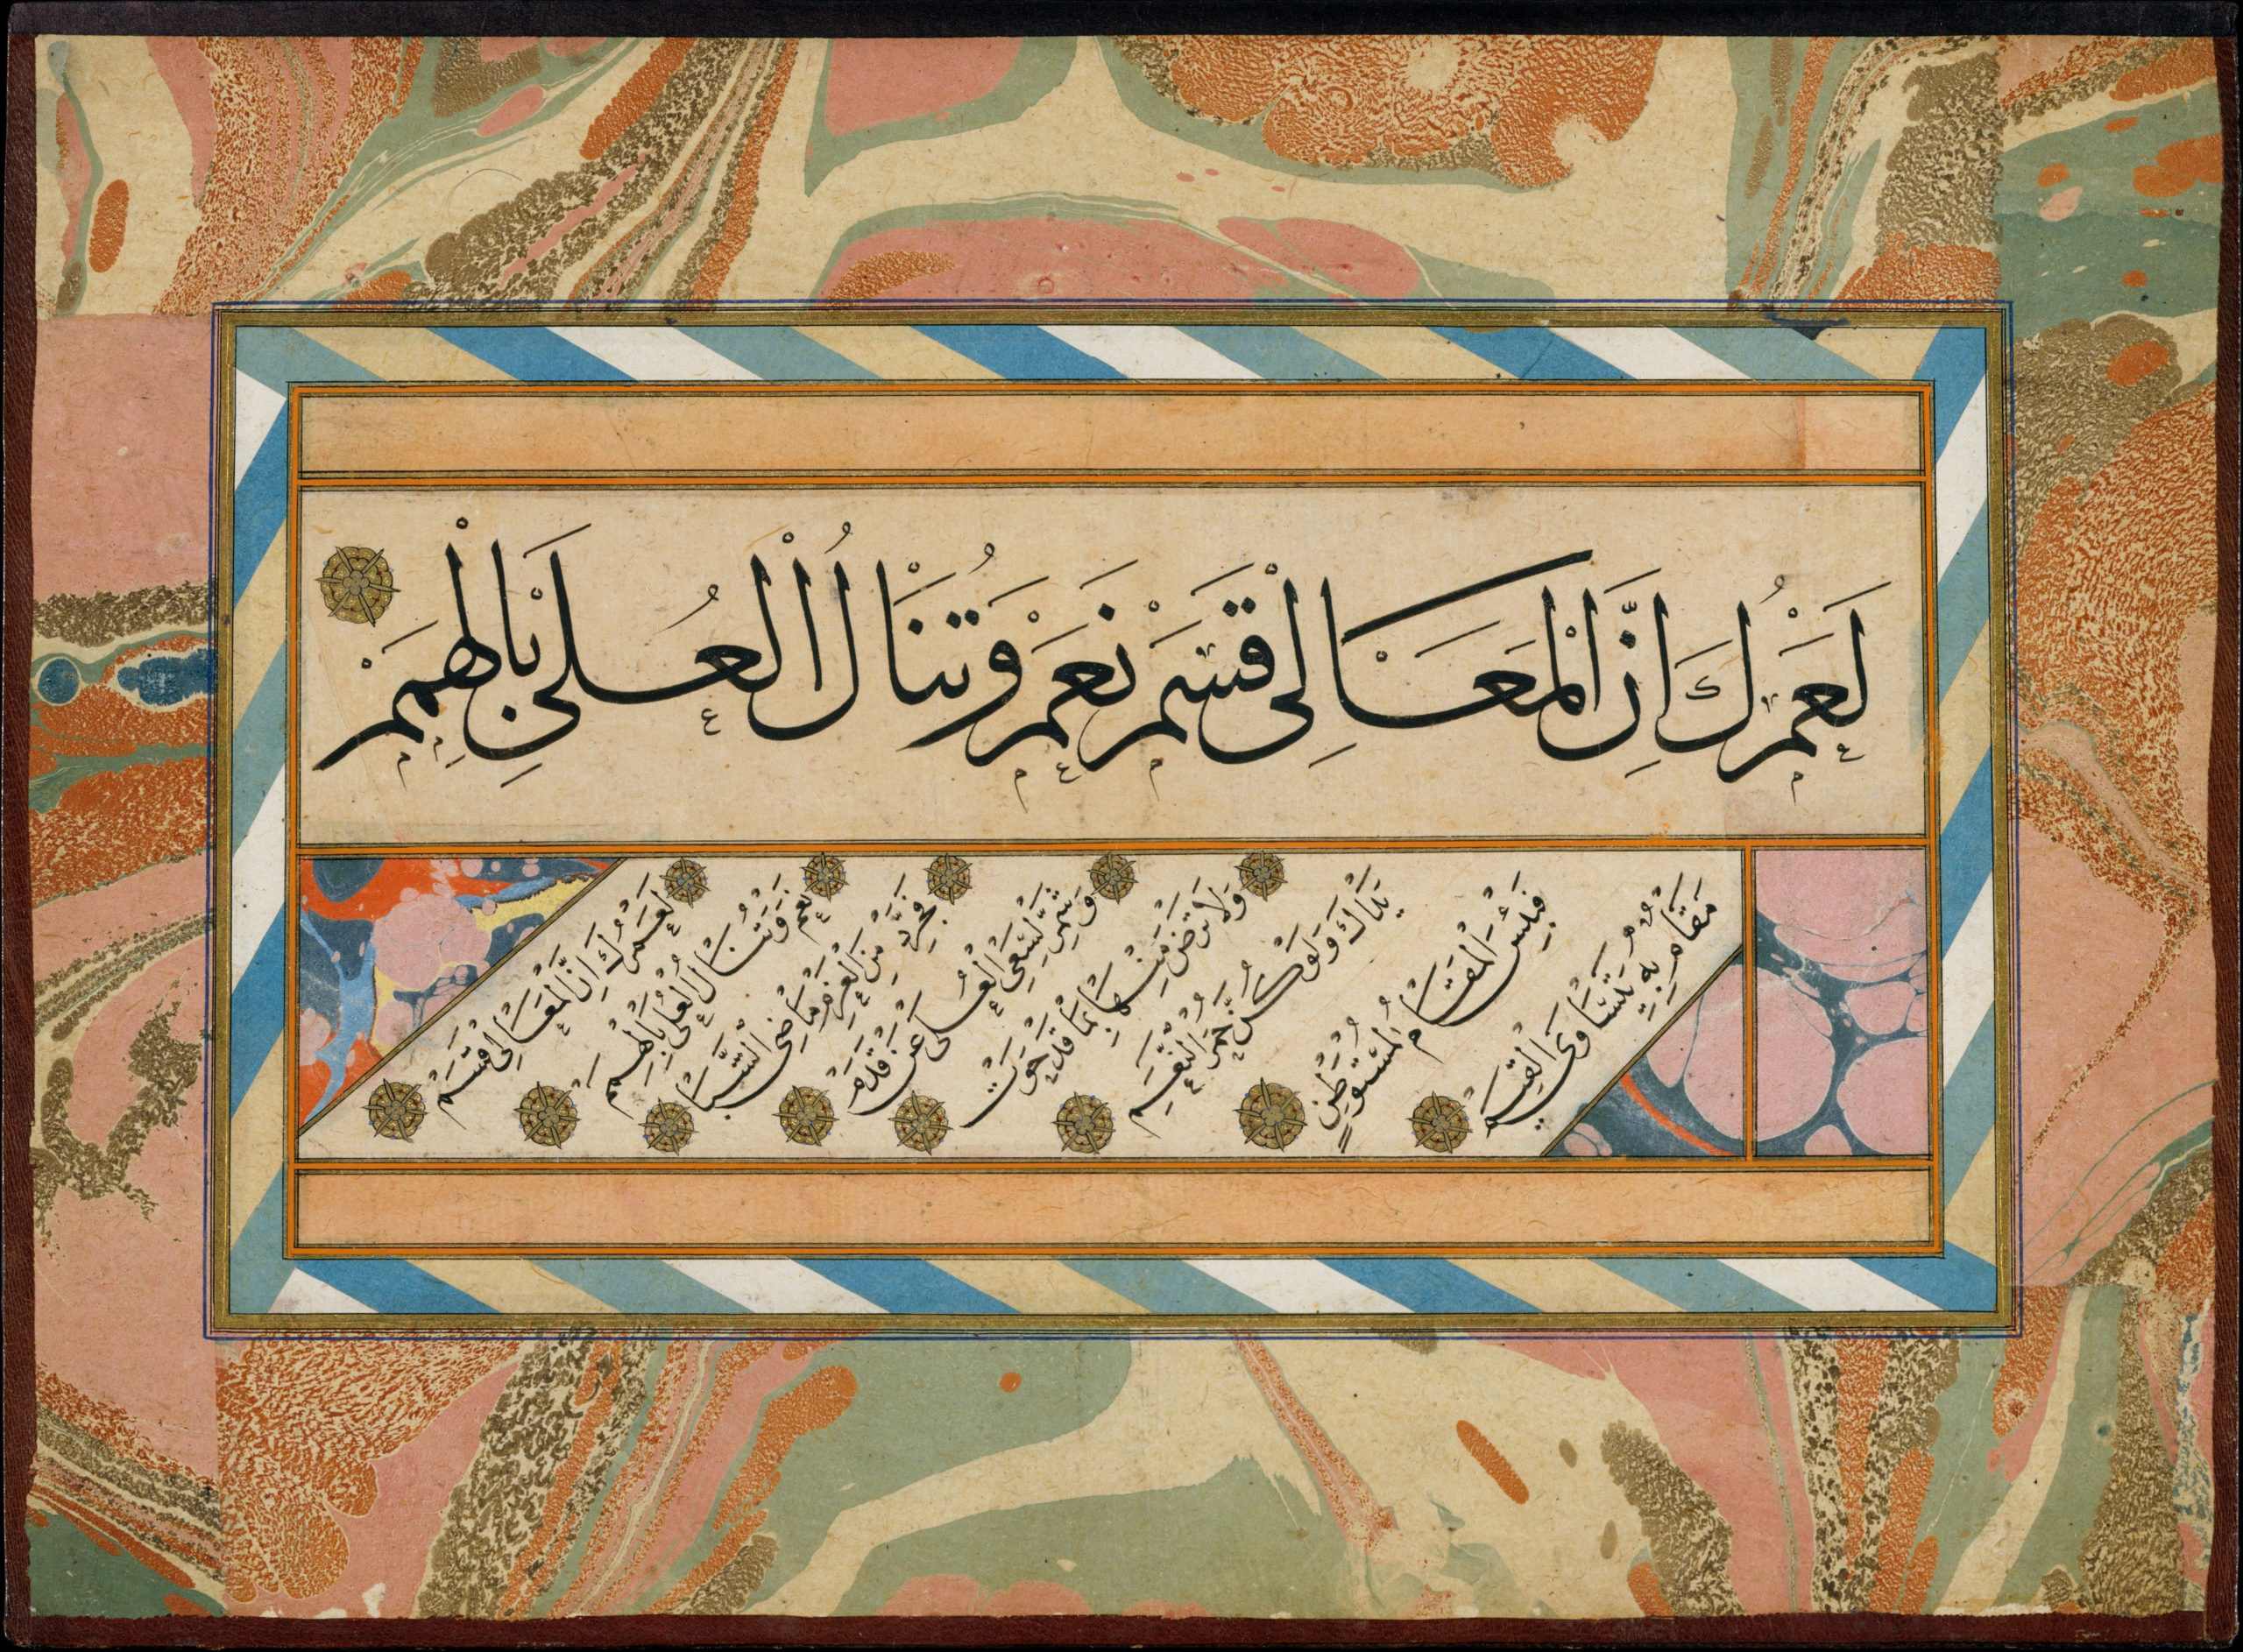 لَعَمْرُكَ اِنَّ الْمَعَالِى قِسَمْ نَعَمْ وَتُنَالُ الْعُلَى بِالْهِمَمْ
لَعَمْرُكَ اِنَّ الْمَعَالِى قِسَمْ
نَعَمْ وَتُنَالُ الْعُلَى بِالْهِمَمْ
فَجَرِّدْ مِنَ الْعَزْمِ مَاضِى الشَّبَا
وَشَمِّرْ لِسَعْىِ الْعُلَى عَنْ قَدَمْ
وَلَا تَرْضَ مِنْهَا بِمَا قَدْ حَوَتْ
يَدَاكَ وَلَوْ كُنَّ حُمْرَ النَّعَمْ
فَبِئْسَ الْمَقَامُ لِمُسْتَوْطِنٍ
مَقَامٌ بِهِ يَتَسَاوَى الْقِيَمْ